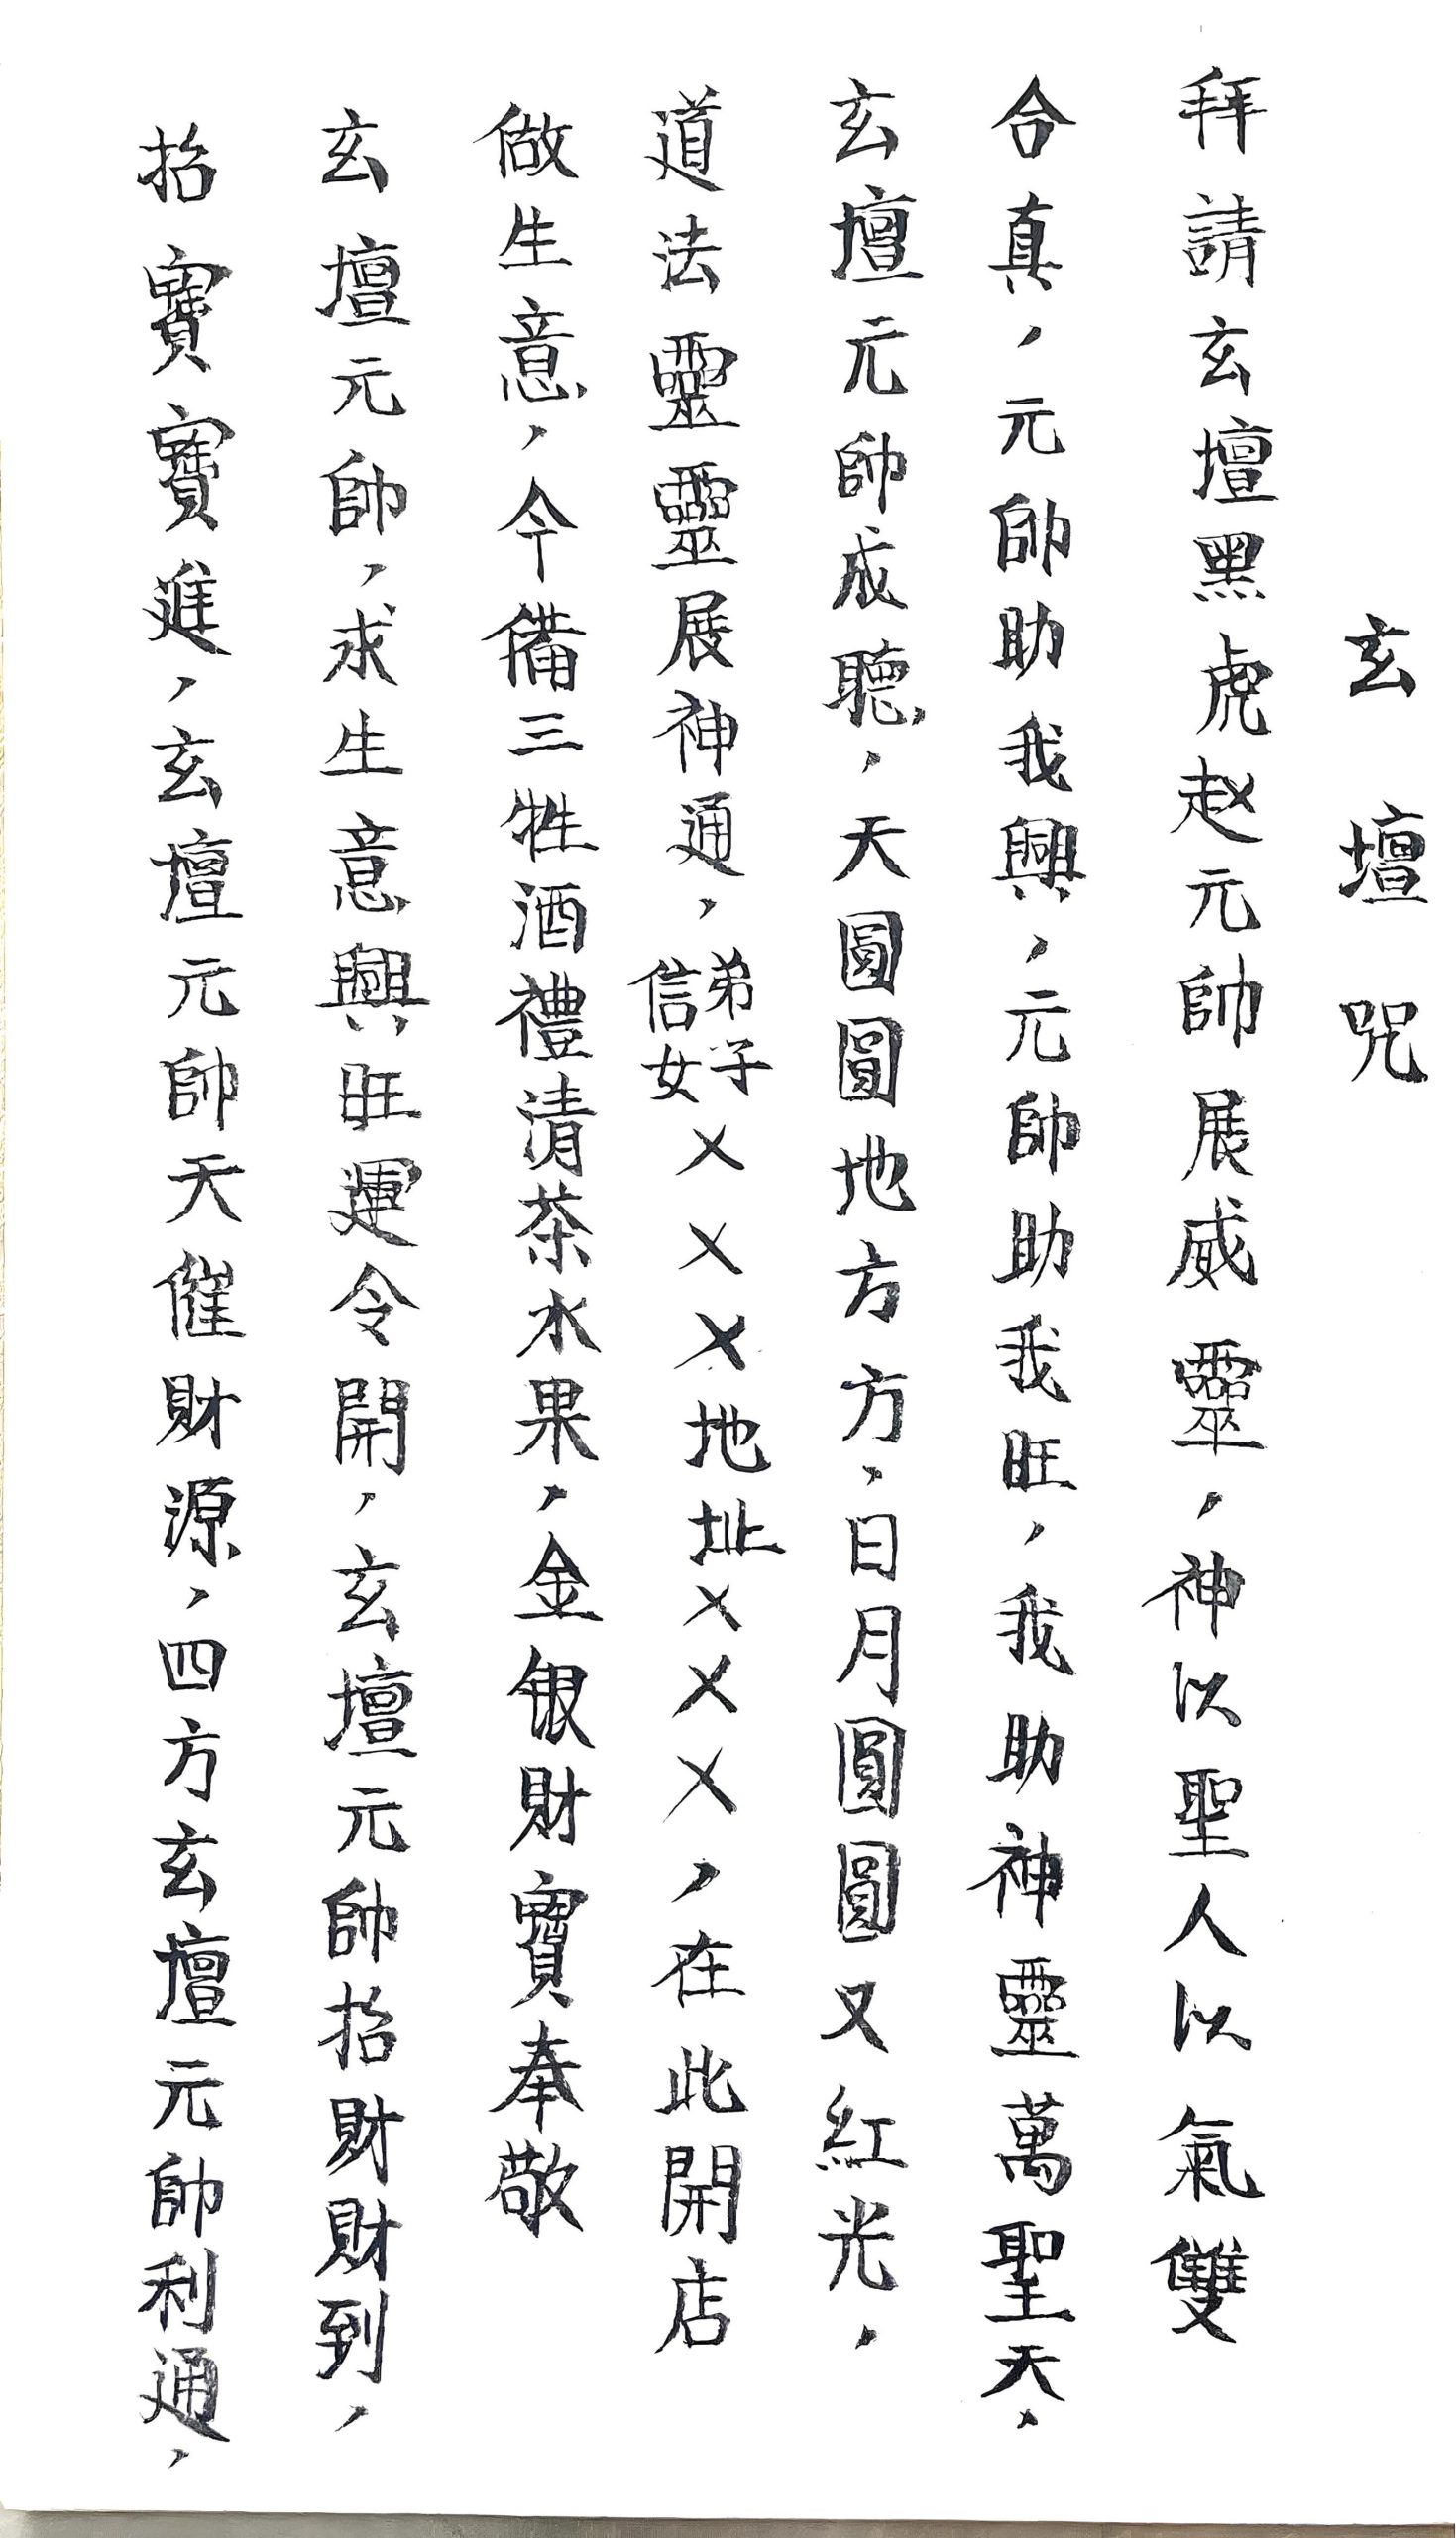 玄壇咒
拜請玄壇黑虎赵元帥展威靈，神以聖人以氣雙
合真，元帥助我興，元帥助我旺，我助神靈萬聖天，
玄壇元帥成聽，天圓圓地方方，日月圓圓又紅光，
道法靈靈展神通，弟子信女×××地址×××，在此開店
做生意，今備三牲酒禮清茶水果，金银財寶奉敬
玄壇元帥，求生意興旺運令開，玄壇元帥招財財到，
招寶寶進，玄壇元帥天催財源，四方玄壇元帥利通，